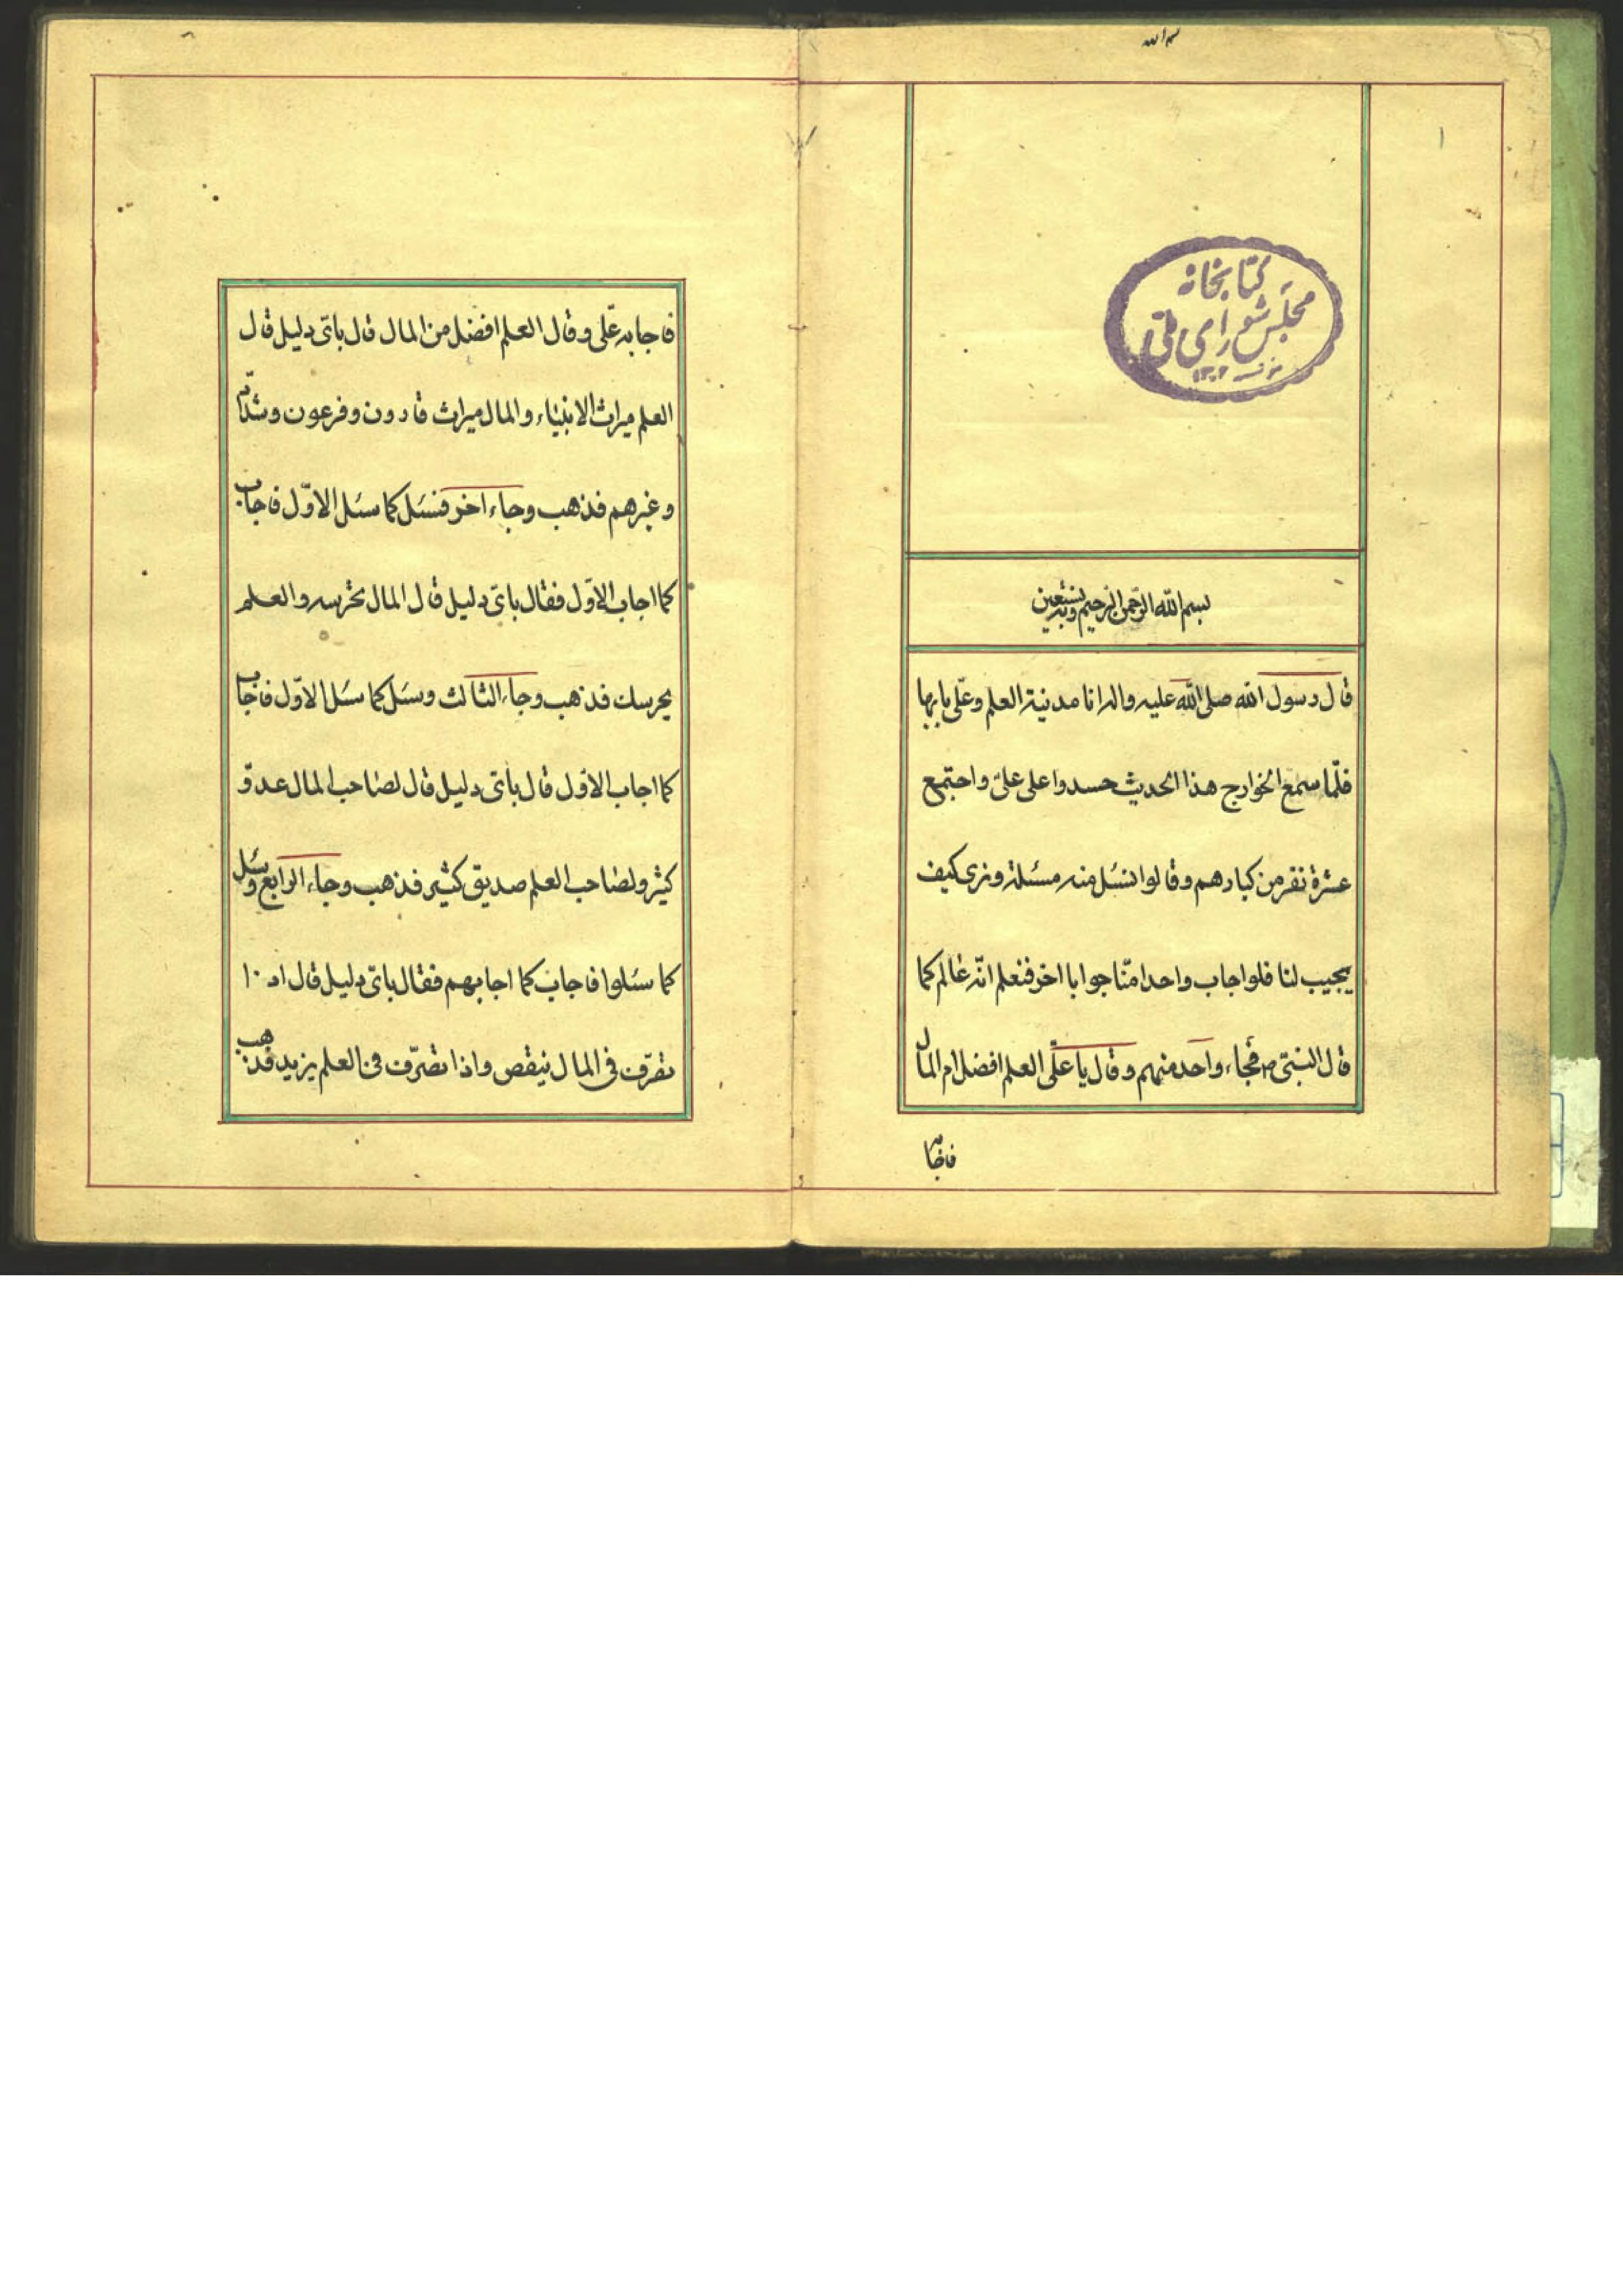 بسم الله
۱
کتابخانه
مجلس شورای ملی
۱۳۰۲
بسم الله الرحمن الرحیم وبه نستعین
قال رسول الله صلی الله علیه واله انا مدینة العلم وعلی بابها
فلمّا سمع الخوارج هذا الحدیث حسدوا علی علیّ واجتمع
عشرة نفر من کبارهم وقالوا لنسئل منه مسئلة ونری کیف
یجیب لنا فلو اجاب واحدا منّا جوابا اخر فنعلم انّه عالم کما
قال النبیّ ص فجاء واحد منهم وقال یا علیّ العلم افضل ام المال
فاجابه
فاجابه علّی وقال العلم افضل من المال قال بایّ دلیل قال
العلم میراث الانبیاء والمال میراث قارون وفرعون وشدّاد
وغیرهم فذهب وجاء اخر فسئل کما سئل الاوّل فاجاب
کما اجاب الاوّل فقال بایّ دلیل قال المال تحرسه والعلم
یحرسک فذهب وجاء الثالث وسئل کما سئل الاوّل فاجاب
کما اجاب الاوّل قال بایّ دلیل قال لصاحب المال عدوّ
کثیر ولصاحب العلم صدیق کثیر فذهب وجاء الرابع وسئل
کما سئلوا فاجاب کما اجابهم فقال بایّ دلیل قال اذا
تصرّف فی المال ینقص واذا تصرّف فی العلم یزید فذهب